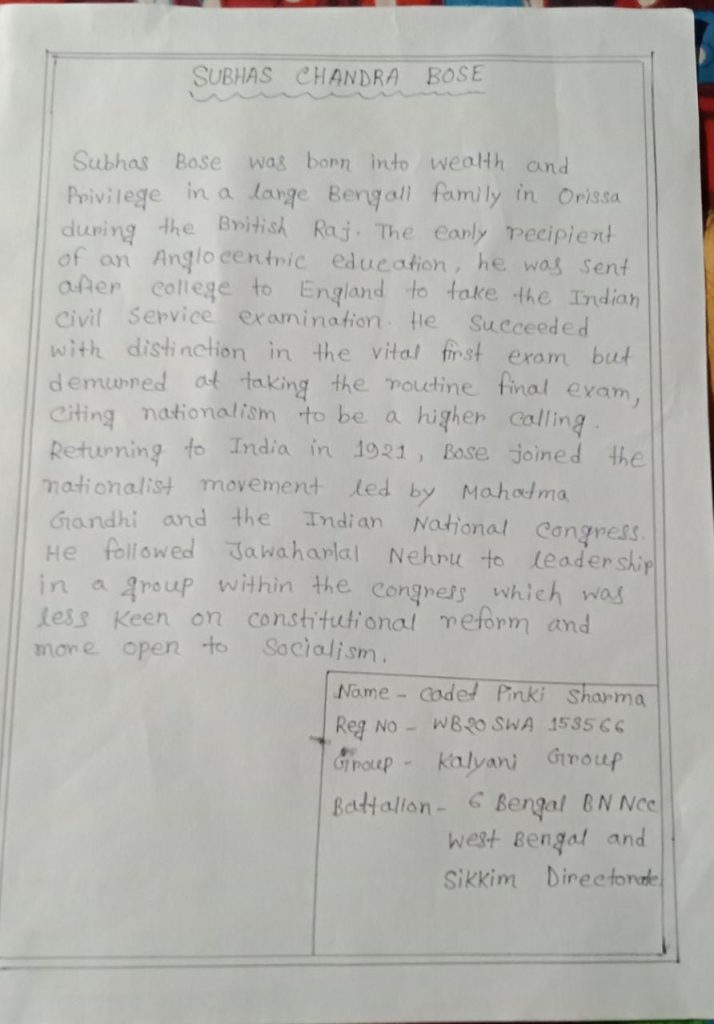 SUBHAS CHANDRA BOSE
Subhas Bose was born into wealth and
Privilege in a large Bengali family in Orissa
during the British Raj. The early recipient
of an Anglocentric education, he was sent
after college to England to take the Indian
Civil Service examination. He Succeeded
with distinction in the vital first exam but
demurred at taking the routine final exam,
Citing nationalism to be a higher calling.
Returning to India in 1921, Bose joined the
nationalist movement led by Mahatma
Gandhi and the Indian National Congress.
He followed Jawaharlal Nehru to leadership
in a group within the Congress which was
less Keen on constitutional reform and
more open to Socialism.
Name - Cadet Pinki Sharma
Reg No - WB20 SWA 153566
Group - Kalyani Group
Battalion - 6 Bengal BN Ncc
West Bengal and
Sikkim Directorate